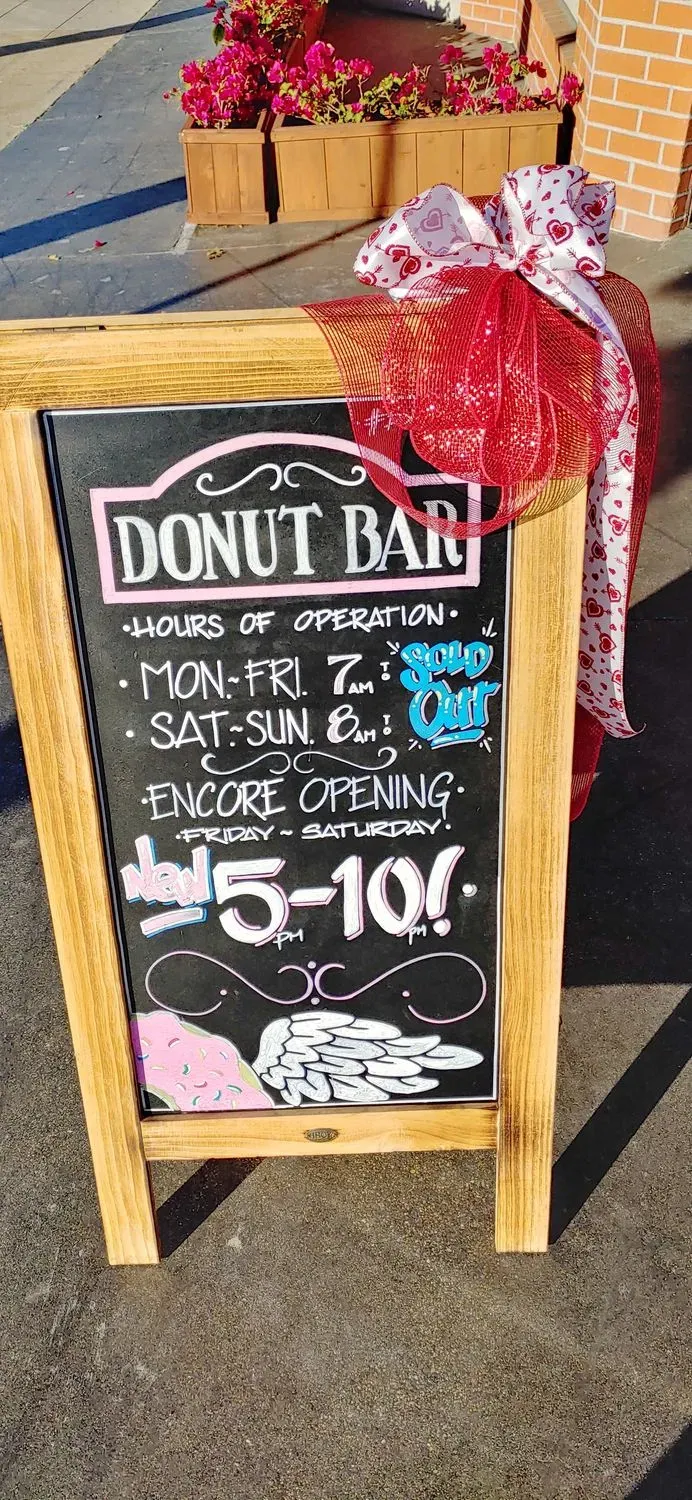 DONUT BAR
•HOURS OF OPERATION•
• MON.~FRI. 7AM TO SOLD OUT
• SAT.~SUN. 8AM TO
•ENCORE OPENING•
•FRIDAY ~ SATURDAY•
NEW 5PM-10PM!